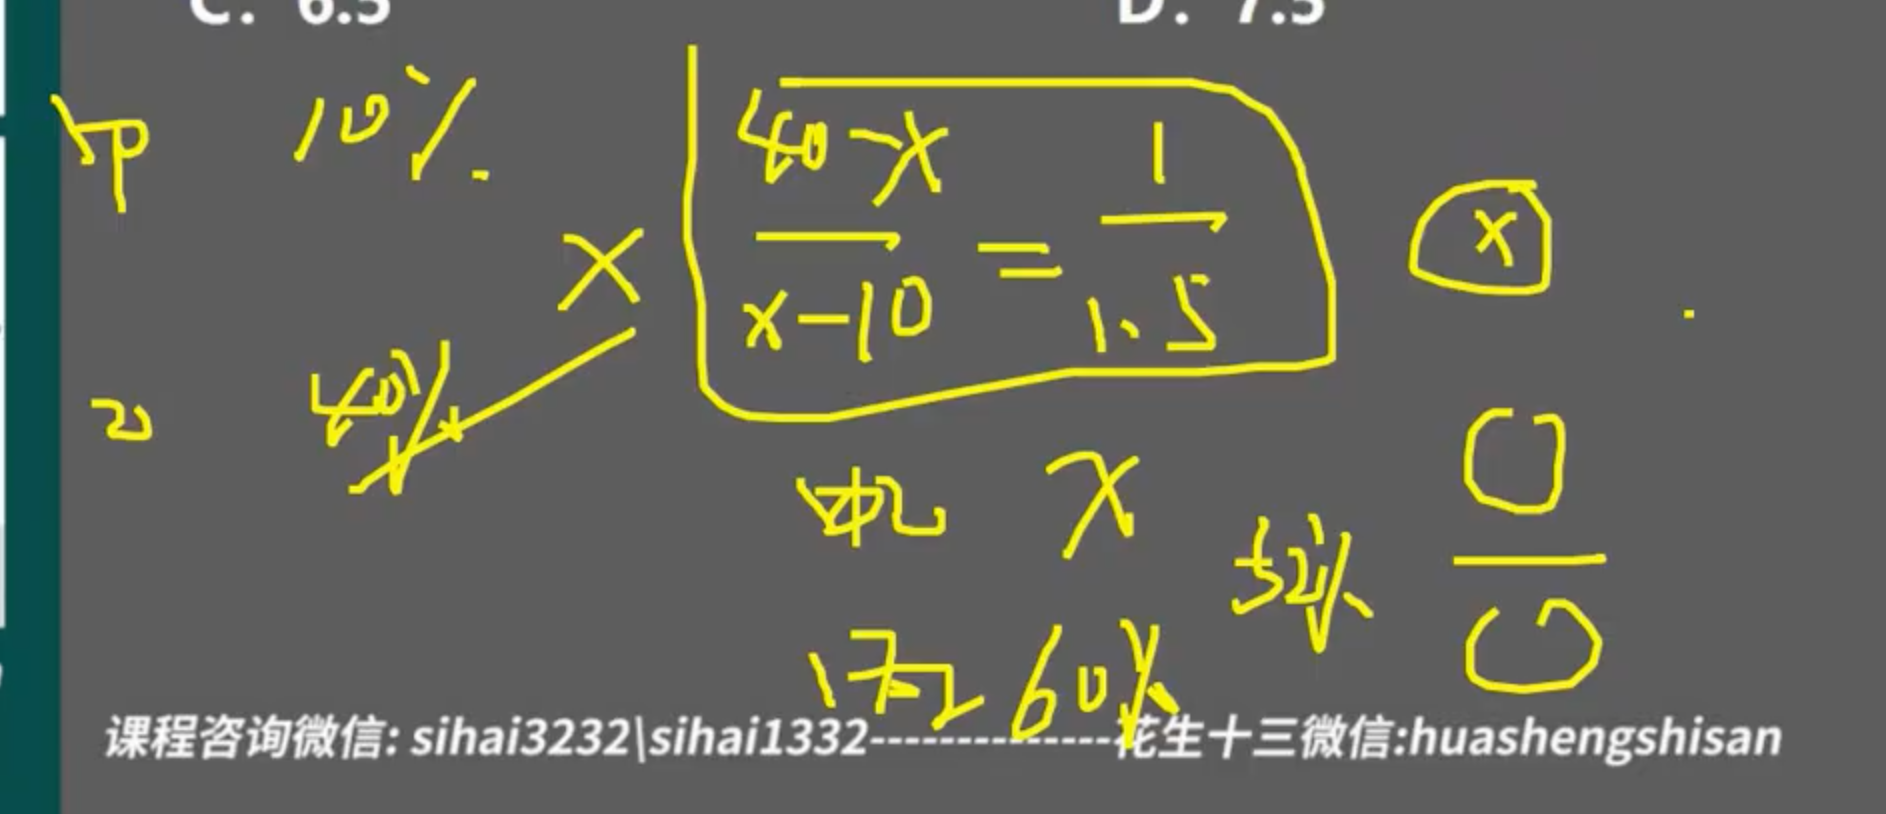 C. 6.5 D. 7.5
甲 10%
40-x / x-10 = 1 / 1.5
x
x
乙 40%
x
52%
60%
课程咨询微信: sihai3232\sihai1332--------------花生十三微信:huashengshisan